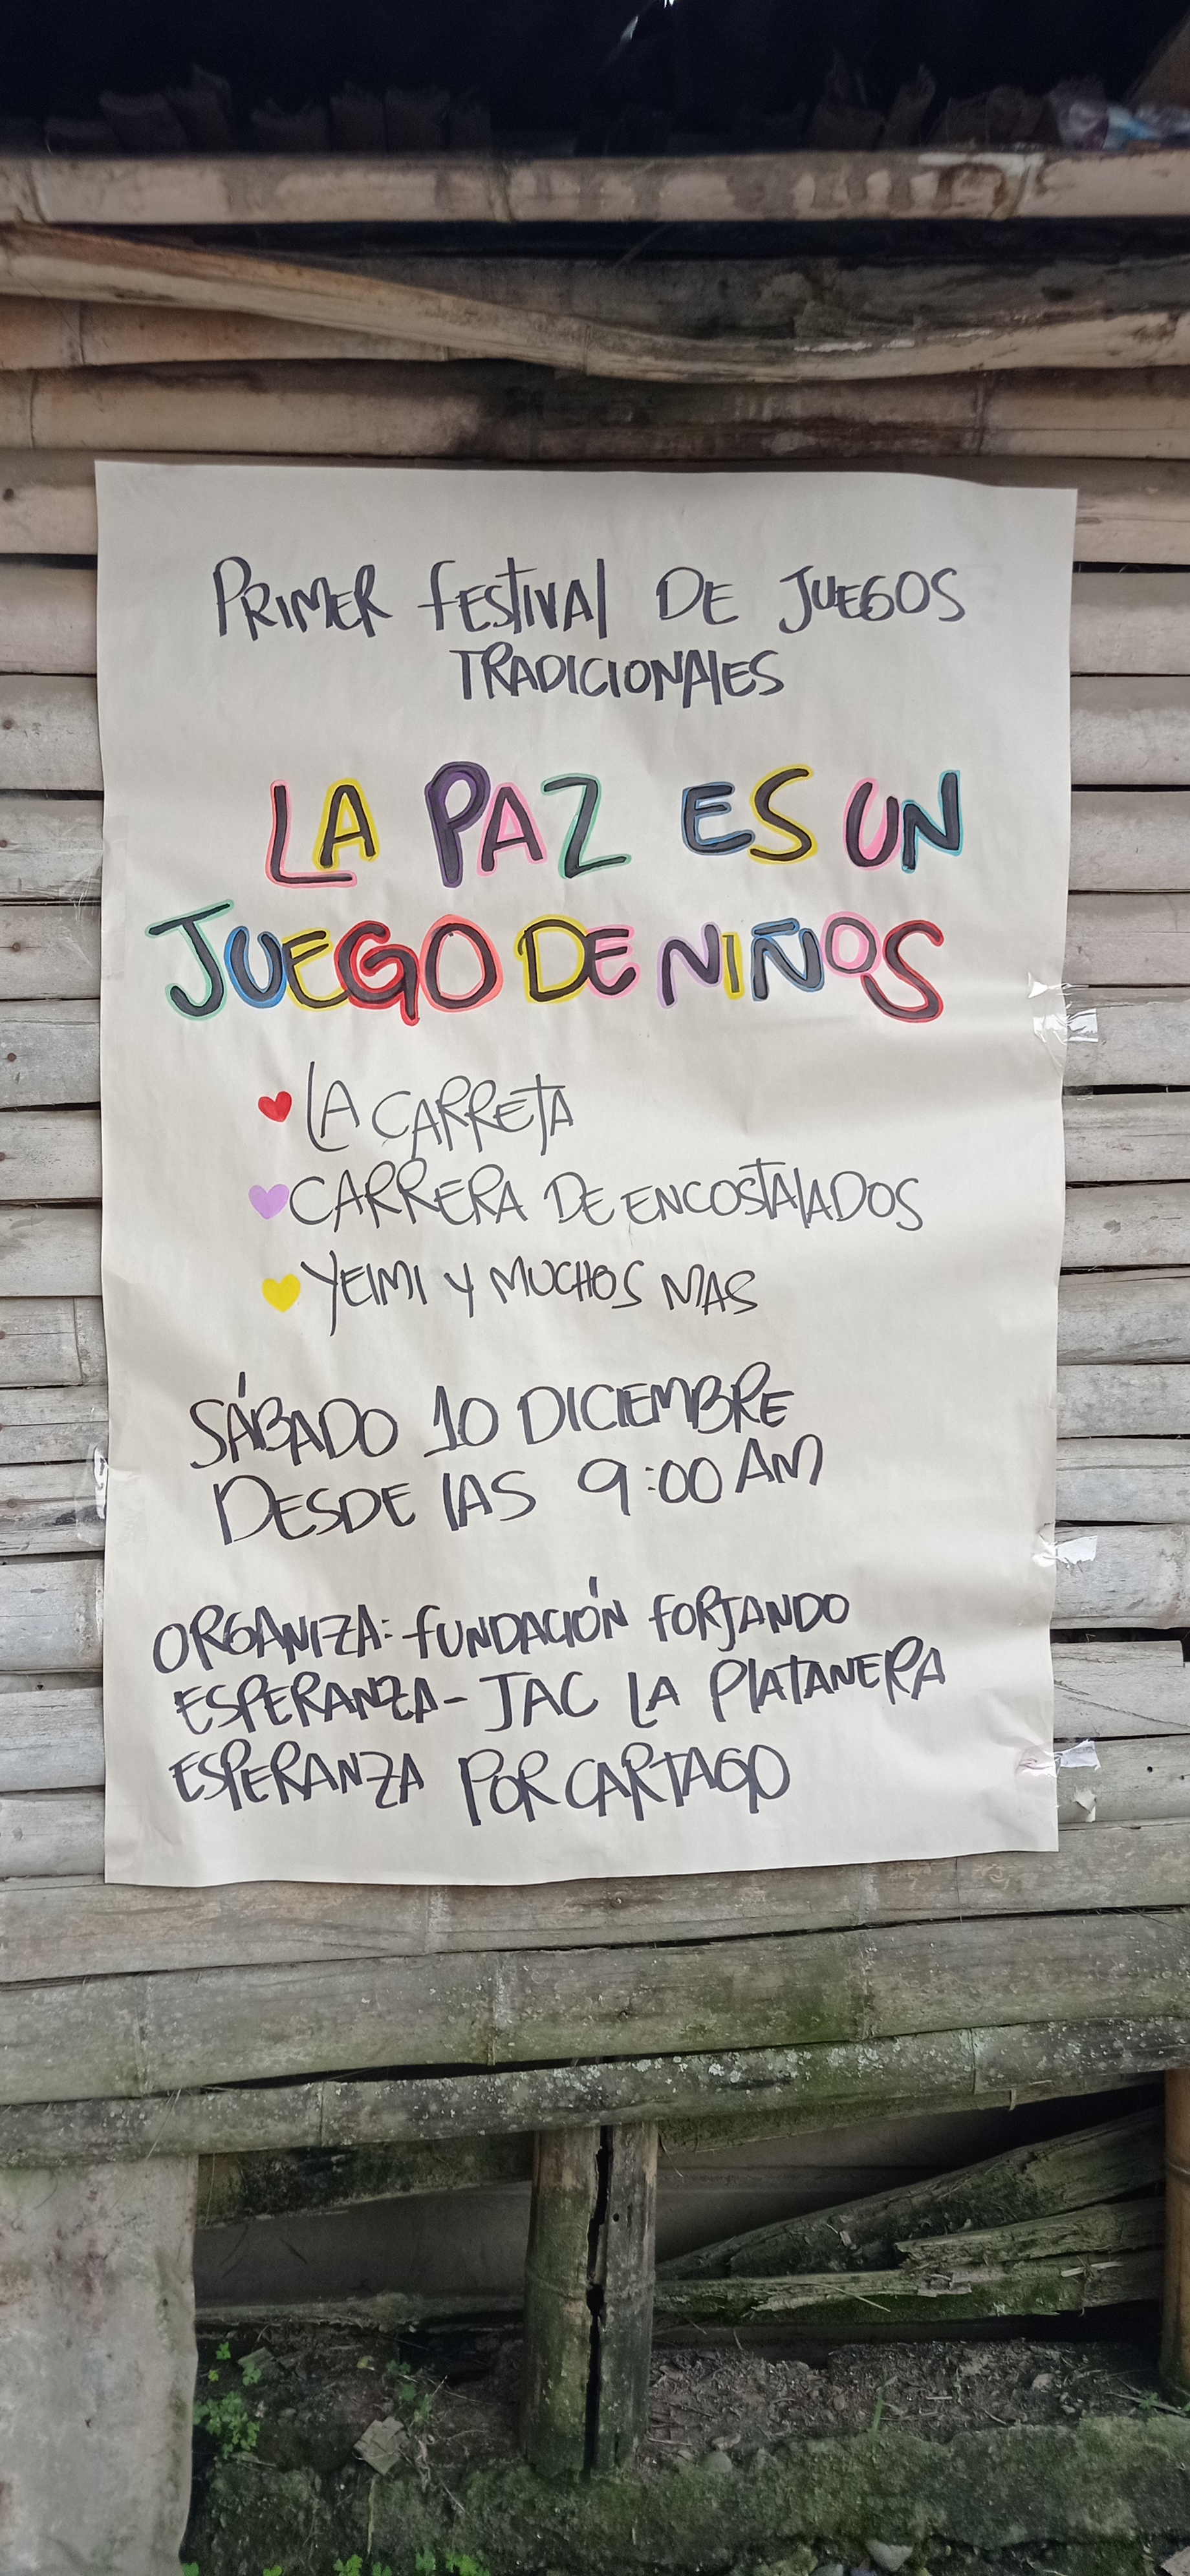 PRIMER FESTIVAL DE JUEGOS
TRADICIONALES
LA PAZ ES UN
JUEGO DE NIÑOS
LA CARRETA
CARRERA DE ENCOSTALADOS
YEIMI Y MUCHOS MAS
SÁBADO 10 DICIEMBRE
DESDE LAS 9:00 AM
ORGANIZA: FUNDACIÓN FORJANDO
ESPERANZA - JAC LA PLATANERA
ESPERANZA POR CARTAGO